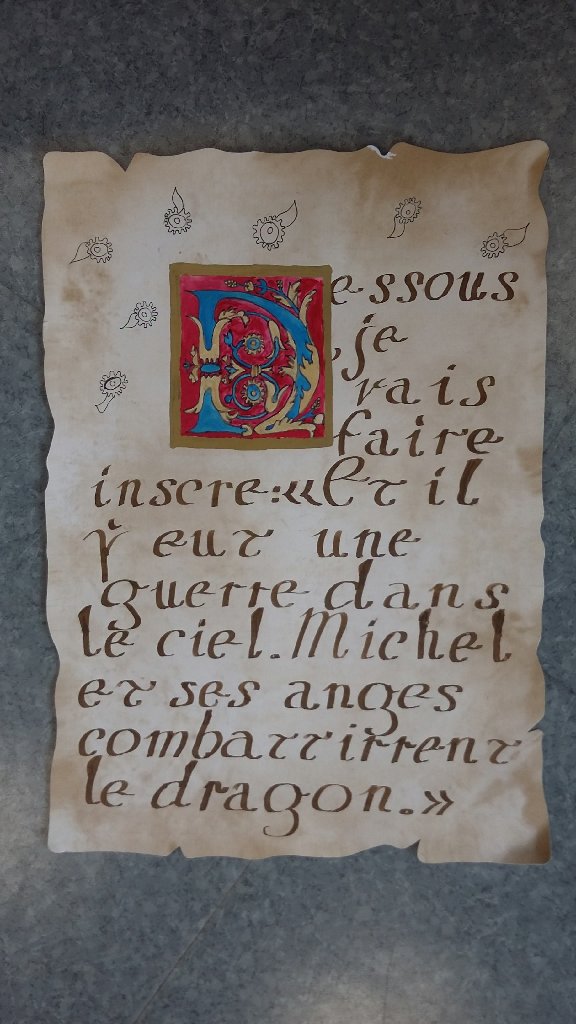 Dessous
, je
vais
faire
inscre:«Et il
y eut une
guerre dans
le ciel. Michel
et ses anges
combattirrent
le dragon.»